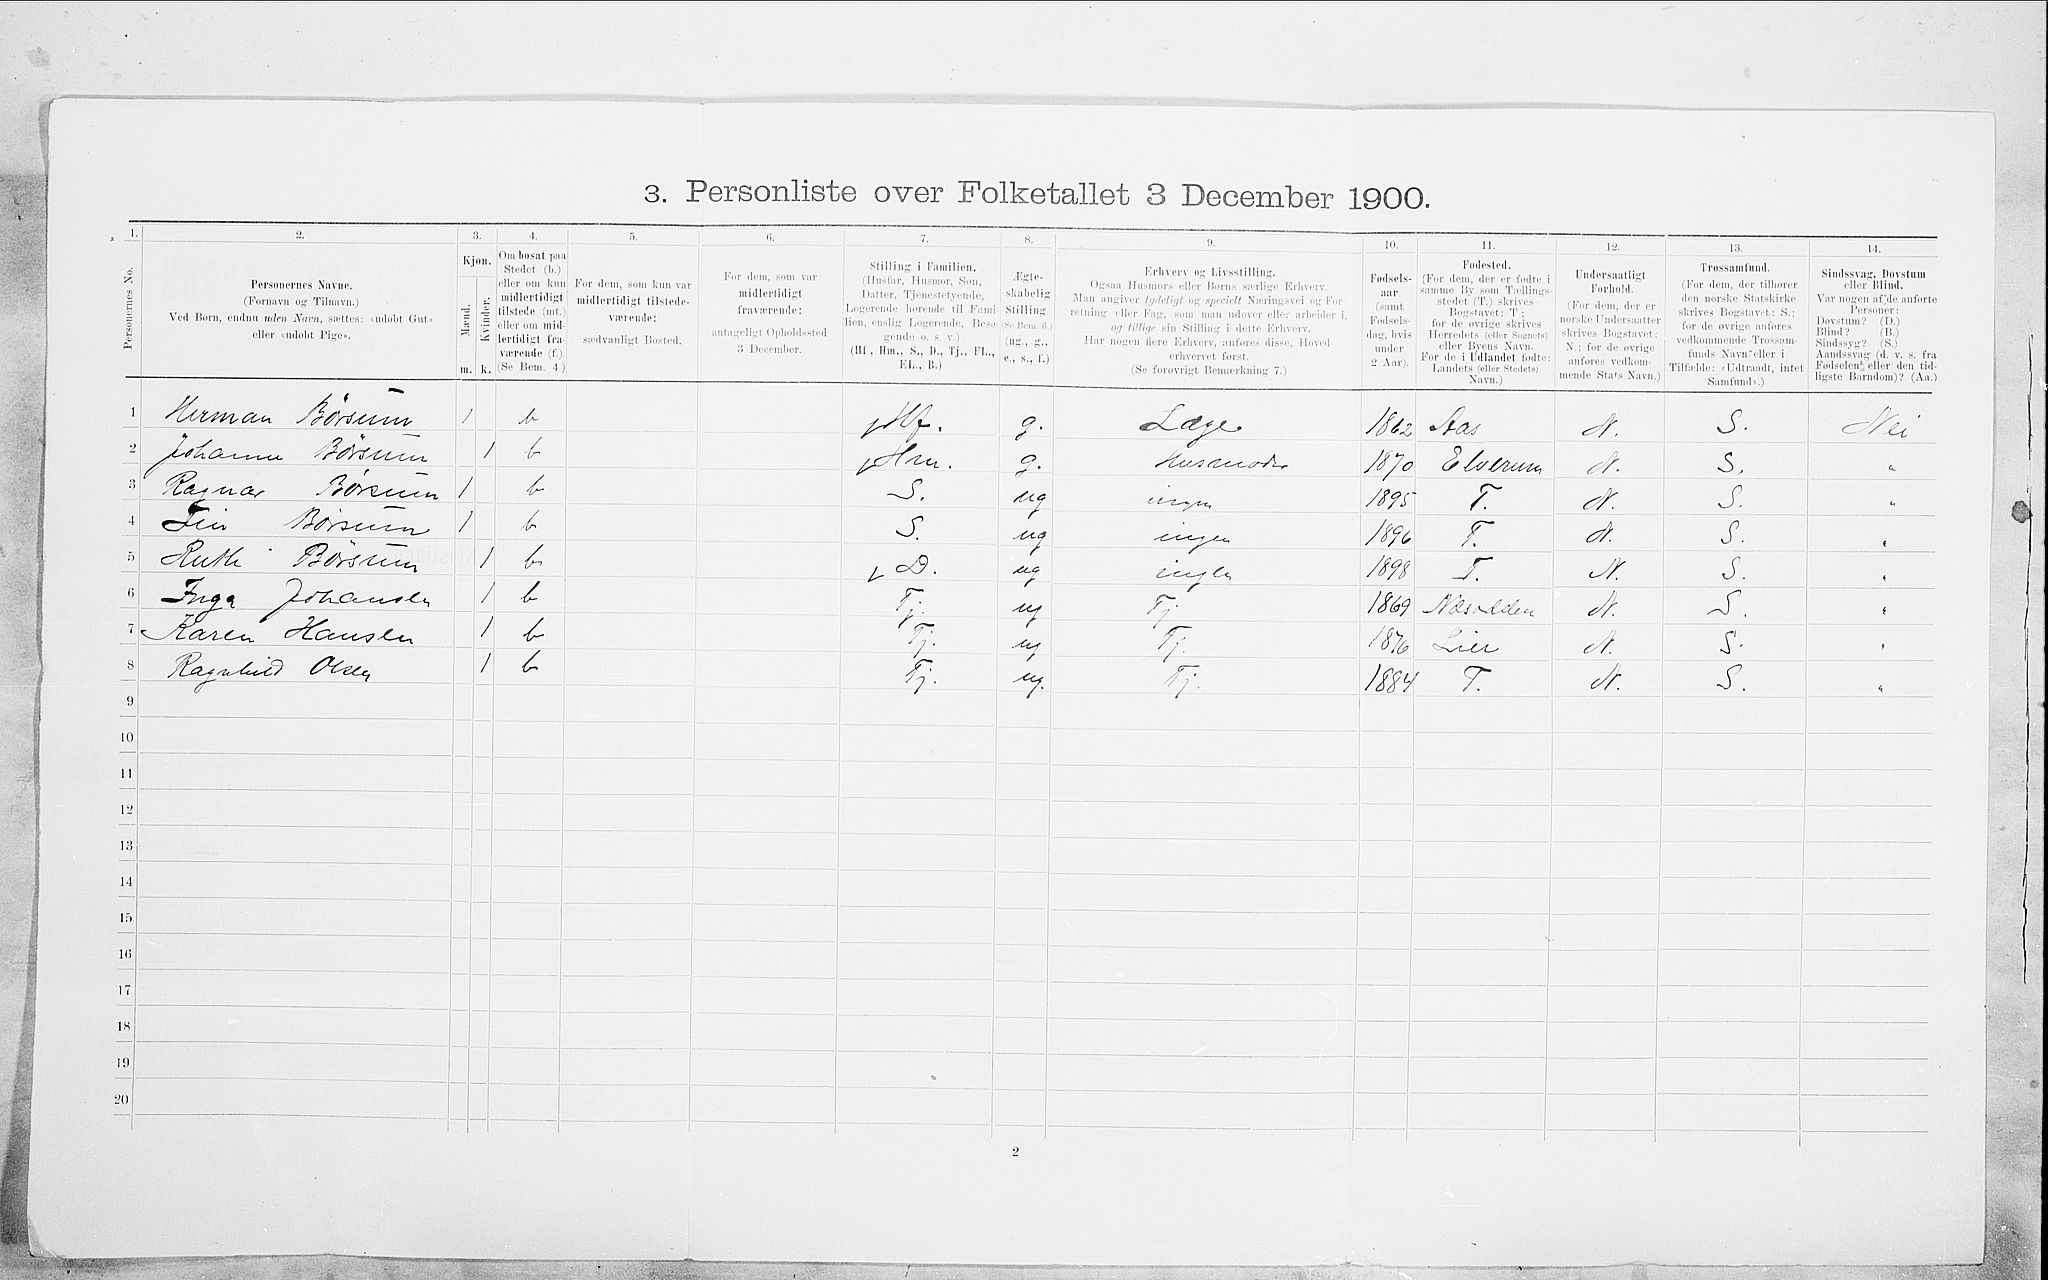 3. Personliste over Folketallet 3 December 1900.
1. 2. 3. 4. 5. 6. 7. 8. 9. 10. 11. 12. 13. 14.
Personernes No.
Personernes Navne.
(Fornavn og Tilnavn.)
Ved Børn, endnu uden Navn, sættes: «udobt Gut»
eller «udobt Pige».
Kjøn.
Mænd.
Kvinder.
m. k.
Om bosat paa
Stedet (b.)
eller om kun
midlertidigt
tilstede (mt.)
eller om mid-
lertidigt fra-
værende (f.).
(Se Bem. 4.)
For dem, som kun var
midlertidigt tilstede-
værende:
sædvanligt Bosted.
For dem, som var
midlertidigt
fraværende:
antageligt Opholdssted
3 December.
Stilling i Familien.
(Husfar, Husmor, Søn,
Datter, Tjenestetyende,
Logerende hørende til Fami-
lien, enslig Logerende, Besø-
gende o. s. v.)
(Hf., Hm., S., D., Tj., FL.,
EL., B.)
Ægte-
skabelig
Stilling.
(Se Bem. 6.)
(ug., g.,
e., s., f.)
Erhverv og Livsstilling.
Ogsaa Husmors eller Børns særlige Erhverv.
Man angiver tydeligt og specielt Næringsvei og For-
retning eller Fag, som man udøver eller arbeider i,
og tillige sin Stilling i dette Erhverv.
Har nogen flere Erhverv, anføres disse, Hoved-
erhvervet først.
(Se forøvrigt Bemærkning 7.)
Fødsels-
aar
(samt
Fødsels-
dag, hvis
under
2 Aar).
Fødested.
(For dem, der er fødte i
samme By som Tællings-
stedet (T.) skrives
Bogstavet: T;
for de øvrige skrives
Herredets (eller Sognets)
eller Byens Navn.
For de i Udlandet fødte:
Landets (eller Stedets)
Navn.)
Undersaatligt
Forhold.
(For dem, der er
norske Undersaatter
skrives Bogstavet:
N.; for de øvrige
anføres vedkom-
mende Stats Navn.)
Trossamfund.
(For dem, der tilhører
den norske Statskirke
skrives Bogstavet: S.;
for de øvrige anføres
vedkommende Trossam-
funds Navn eller i
Tilfælde: «Udtraadt, intet
Samfund».)
Sindssvag, Døvstum
eller Blind.
Var nogen af de anførte
Personer:
Døvstum? (D.)
Blind? (B.)
Sindssyg? (S.)
Aandssvag (d. v. s. fra
Fødselen eller den tid-
ligste Barndom)? (Aa.)
1 Herman Børsum 1 b Hf. g. Læge 1862 Aas N. S. Nei
2 Johanne Børsum 1 b Hm. g. Husmoder 1870 Elverum N. S. "
3 Ragnar Børsum 1 b S. ug ingen 1895 T. N. S. "
4 Børsum 1 b S. ug ingen 1896 T. N. S. "
5 Ruth Børsum 1 b D. ug ingen 1898 T. N. S. "
6 Inga Johansen 1 b Tj. ug Tj. 1869 Næsodden N. S. "
7 Karen Hansen 1 b Tj. ug Tj. 1876 Lier N. S. "
8 Ragnhild Olsen 1 b Tj. ug. Tj. 1884 T. N. S. "
9
10
11
12
13
14
15
16
17
18
19
20
2